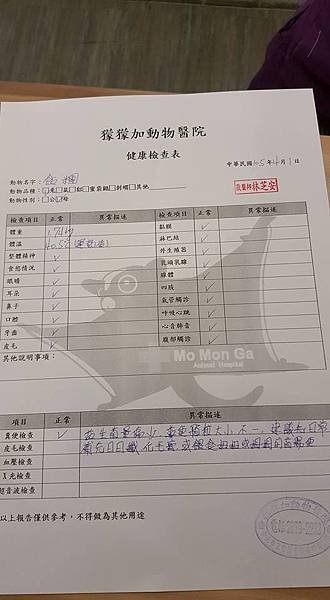 獴獴加動物醫院
健康檢查表
中華民國105年4月1日
動物名字:
動物品種:□兔□鼠□貂□蜜袋鼯□刺蝟□其他
獸醫師林芝安
動物性別:□公□母
檢查項目 正常 異常描述
體重
體溫 40.5℃
整體精神 ✓
食慾情況 ✓
眼睛 ✓
耳朵 ✓
鼻子 ✓
口腔 ✓
牙齒 ✓
皮毛 ✓
檢查項目 正常 異常描述
黏膜 ✓
淋巴結 ✓
外生殖器 ✓
乳頭乳腺 ✓
腺體 ✓
四肢 ✓
氣管觸診 ✓
呼吸心跳 ✓
心音肺音 ✓
腹部觸診 ✓
其他說明事項:
Mo Mon Ga
Animal Hospital
檢查項目 正常 異常描述
糞便檢查 ✓ 益生菌量偏少,糞便顆粒大小不一,建議
皮毛檢查
血壓檢查
X光檢查
超音波檢查
以上報告僅供參考,不得做為其他用途